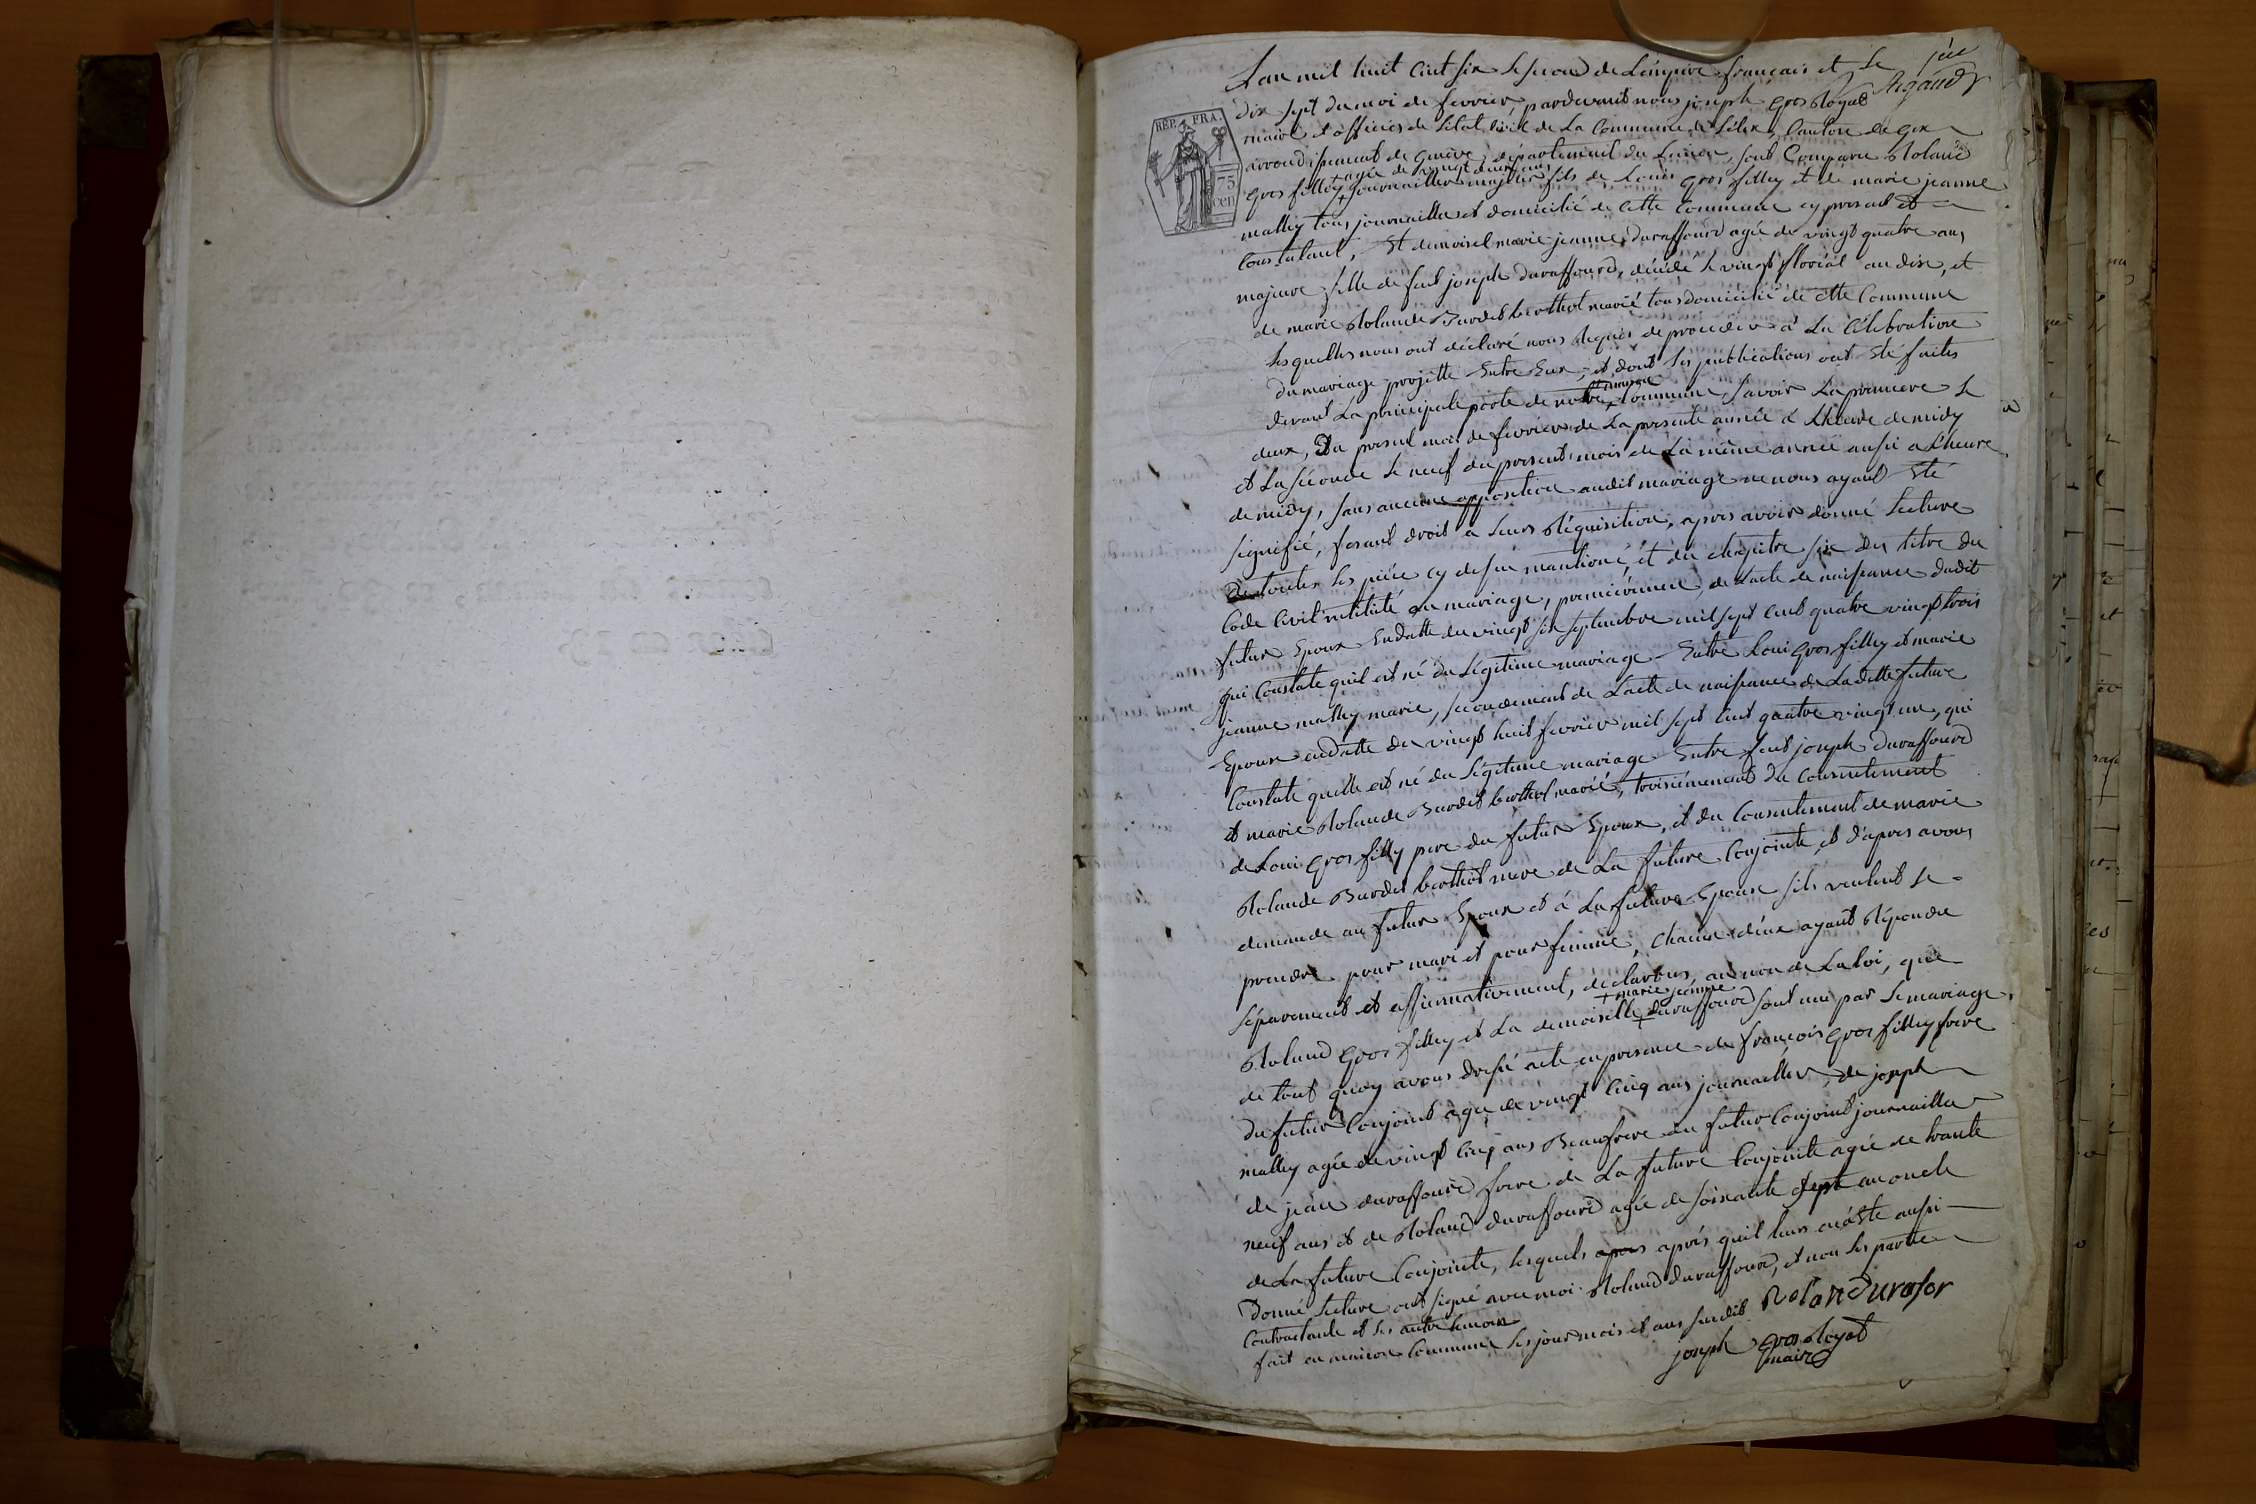 L'an mil huit cent six le second de Lempire français et le
jéie
Regaudy
dix sept du moi de fevrier, pardevant nous joseph gros Royat
maire et officier de l'etat civil de La Commune de Lélex, Canton de gex
arrondissement de Genève, département du Leman, sont Comparu Roland
+ agée de vingt deux ans
gros filley + journaillier majeur fils de Louis gros filley et de marie jeanne
mathey tous journaillier et domicilié de cette Commune cy present et
Constatant, Et demoisel marie jeanne duraffourd agée de vingt quatre ans
majeure fille de feut joseph duraffourd, décédé le vingt floréal an dix, et
de marie Rolande Burdet berthot marié tous domicilié de cette Commune
Lesquelles nous ont déclaré nous requis de proceder à La Célébration
du mariage projetté Entre Eux, et dont les publications ont été faites
maison
devant La principale porte de notre + Commune, savoir La premiere le
deux, Du present mois de fevrier de La presente année à L'heure de midy
et La séconde le neuf du present mois de La même année aussi a L'heure
de midy, sans aucune opposition audit mariage ne nous ayant Eté
signifié, fesant droit a leurs Réquisition, apres avoir donné Lecture
de toutes les piéce cy dessu mantioné, et du chapitre six du titre du
Code Civil intitulé du mariage, premiérement, de L'acte de naissance dudit
futur Epoux Endatte du vingt six septembre mil sept cent quatre vingt trois
qui Constate quil est né du Légitime mariage Entre Loui gros filley et marie
jeanne mathey marie, secondement de L'acte de naissance de La ditte future
Epouse endatte du vingt huit fevrier mil sept cent quatre vingt un, qui
Constate quelle est né du Légitime mariage Entre feut joseph duraffourd
et marie Rolande Burdet berthot marié, troisiémement du Consentement
de Loui gros filley pere du futur Epoux, et du Consentement de marie
Rolande Burdet berthot mere de La future Conjointe, et d'apres avoir
demandé au futur Epoux et à La future Epouse s'ils veulent se
prendre pour mari et pour femme, chacun d'eux ayant Répondu
séparement et affirmativement, déclarons, au nom de La loi, que
+ marie jeanne
Roland gros filley et La demoiselle + duraffourd sont uni par le mariage,
de tout quoy avons dressé acte en presence de françois gros filley frere
du futur Conjoint agée de vingt cinq ans journaillier, de joseph
mathey agée de vingt cinq ans Beaufrere du futur Conjoint journaillier
de jean duraffourd frere de La future Conjointe agée de trante
neuf ans et de Roland duraffourd agée de soixante sept an oncle
de La future Conjointe, lesquels apres aprés quil leurs en a été aussi
Donné Lecture ont signé avec moi Roland duraffourd, et non les partie
Contractante et les autre temoin
fait en maison Commune les jour mois et ans susdit Rolandurafor
joseph gros Royat
maire
REP. FRA.
75
cen